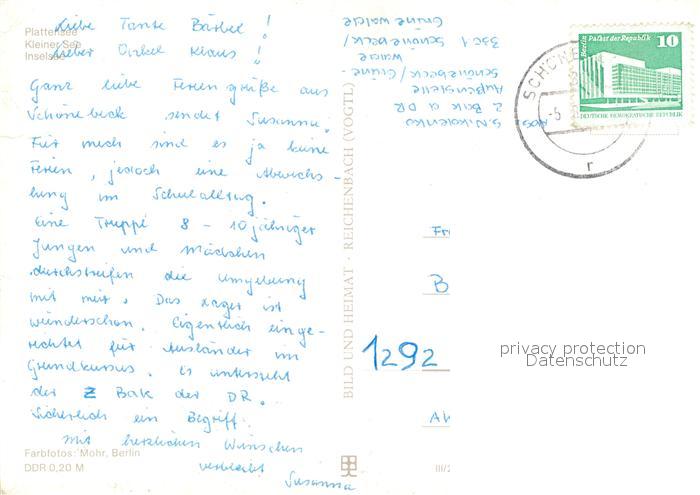 Plattensee
Kleiner See
Inselsee
Liebe Tante Bärbel!
Lieber Onkel Klaus!
Ganz liebe Feriengrüße aus
Schönebeck sendet Susanna.
Für mich sind es ja keine
Ferien, jedoch eine Abwechs-
lung im Schulalltag.
Eine Truppe 8 - 10jähriger
Jungen und Mädchen
durchstreifen die Umgebung
mit mir. Das Lager ist
wunderschön. Eigentlich einge-
richtet für Ausländer im
Grundkursus. Es untersteht
der Z Bak der DR.
Sicherlich ein Begriff.
Mit herzlichen Wünschen
verbleibt
Susanna
Farbfotos: Mohr, Berlin
DDR 0,20 M
BILD UND HEIMAT · REICHENBACH (VOGTL)
III/
S. Nikolenko
Z Bak d DR
Außenstelle
Schönebeck/Grüne-
walde
3301 Schönebeck/
Grünewalde
Berlin Palast der Republik 10
DEUTSCHE DEMOKRATISCHE REPUBLIK
SCHÖNE
-5
r
Fr
B
1292
privacy protection
Datenschutz